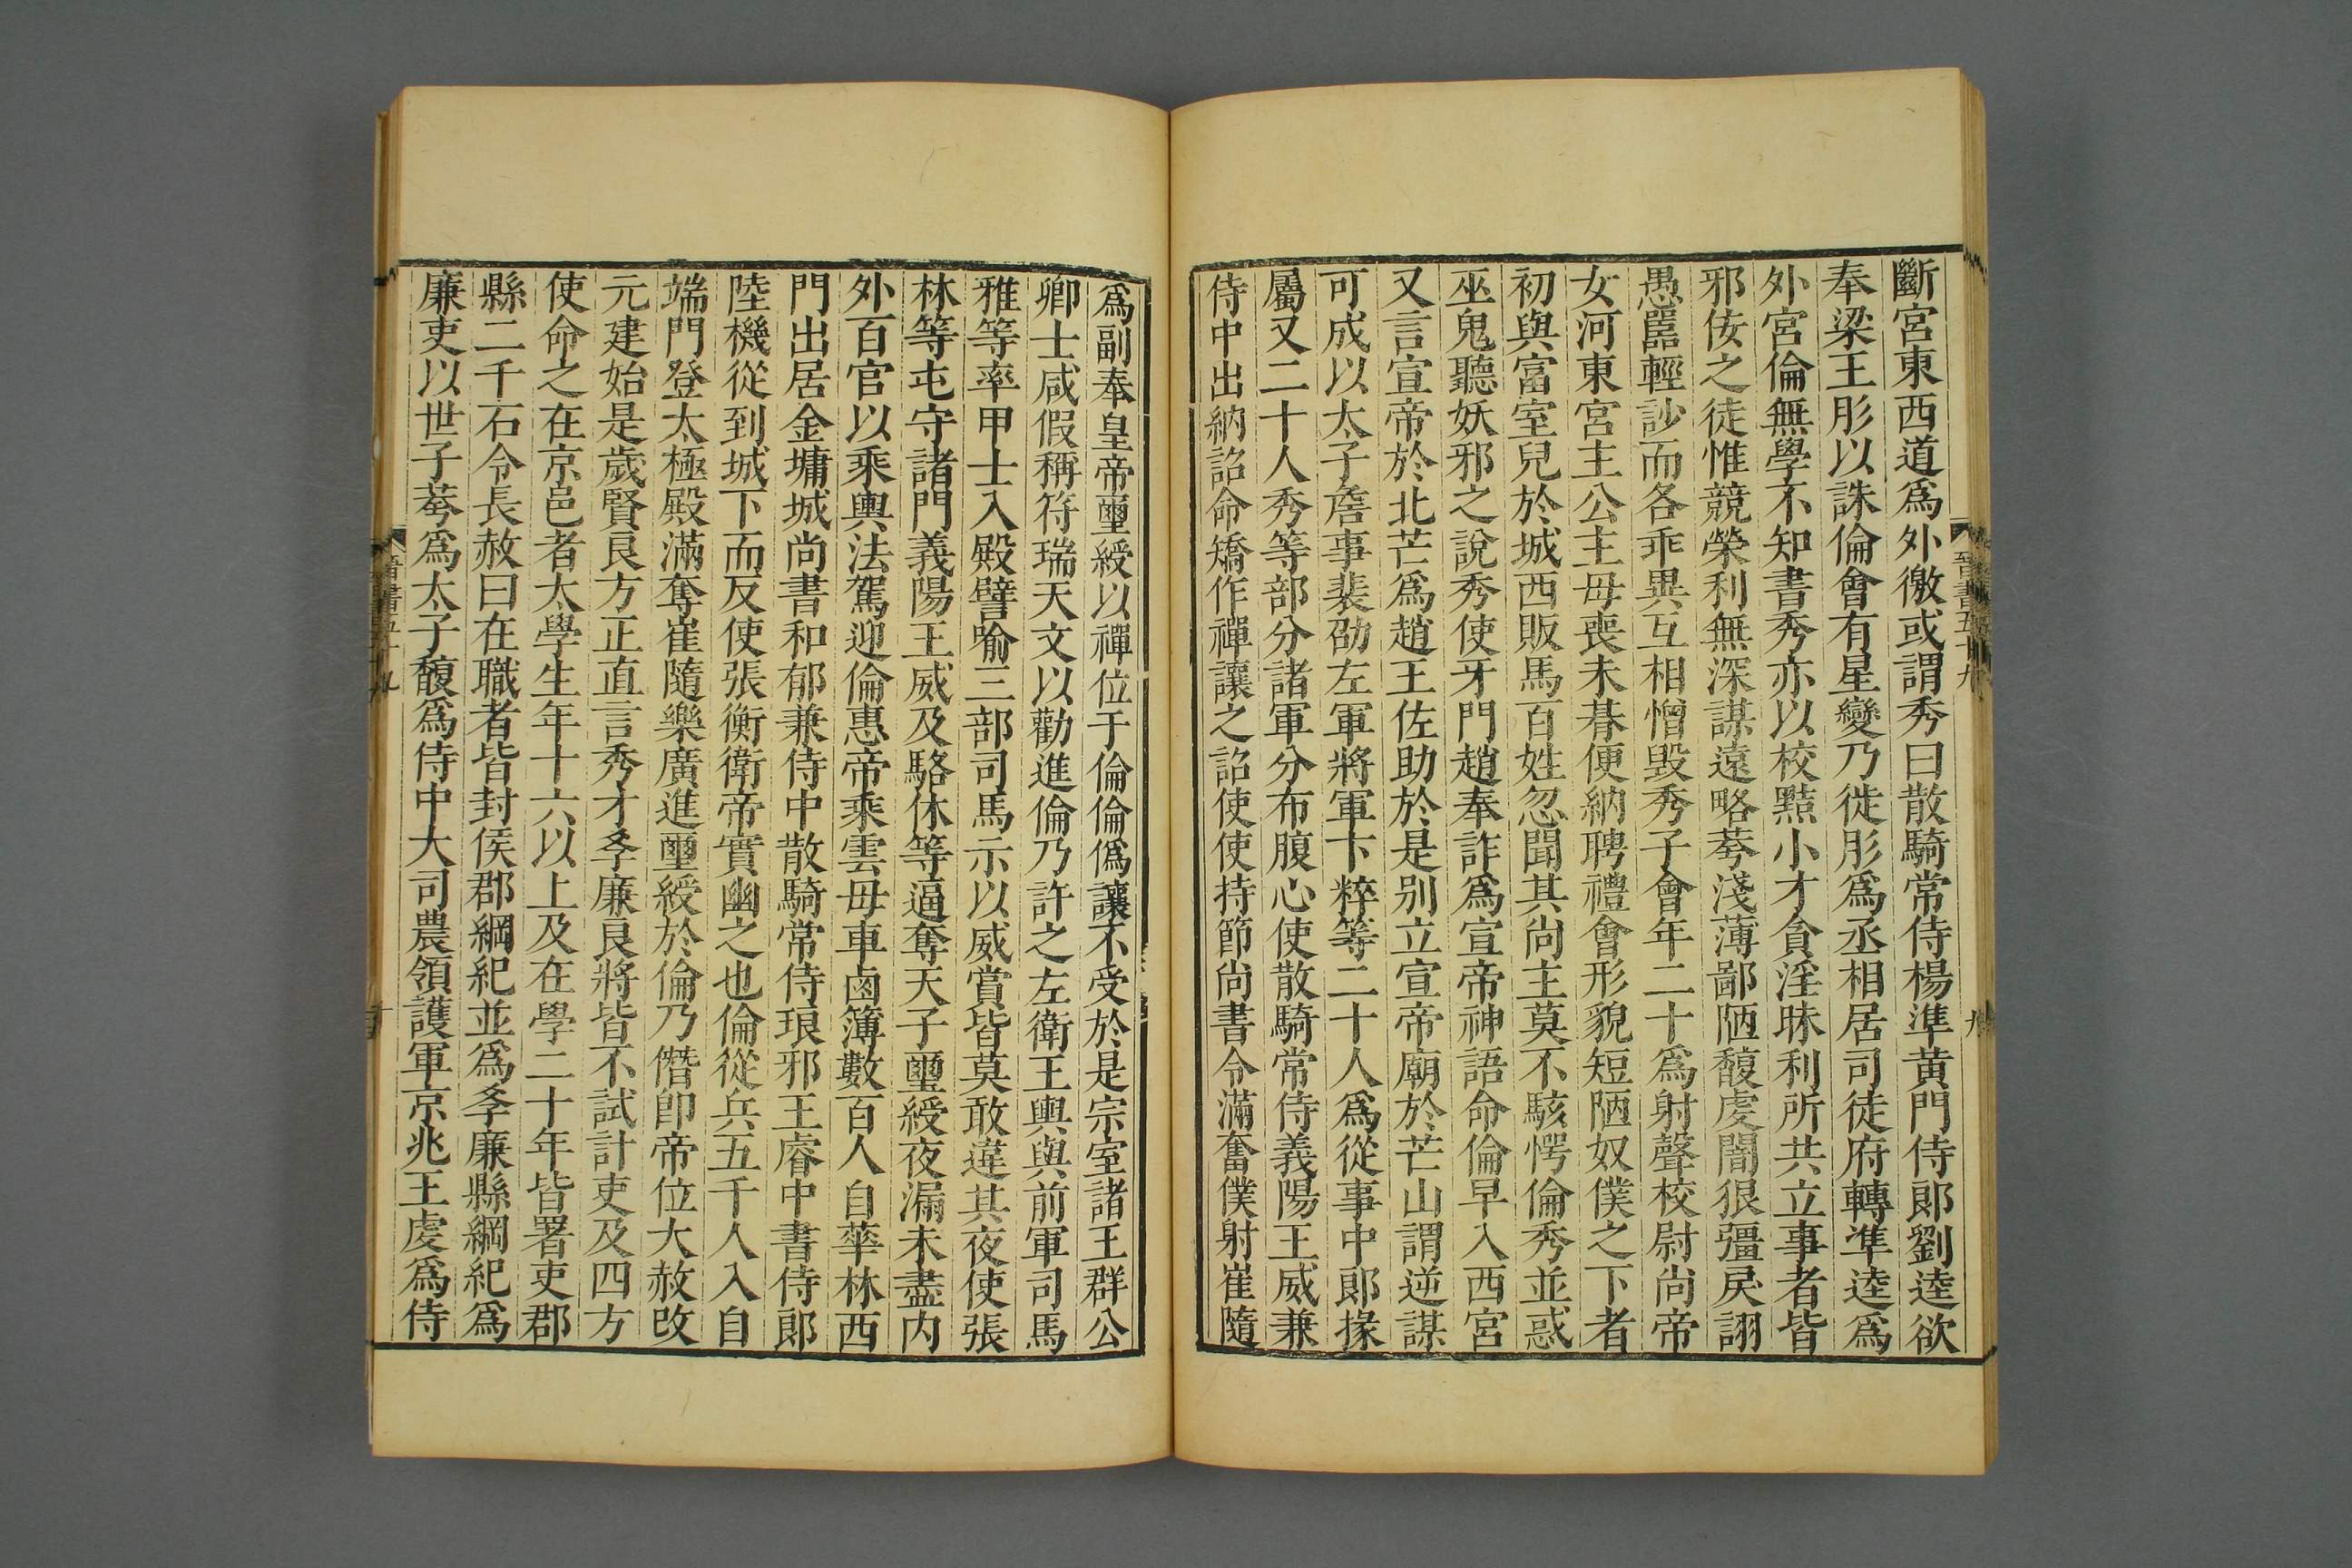 斷宮東西道爲外徼或謂秀曰散騎常侍楊準黄門侍郎劉逵欲
奉梁王肜以誅倫會有星變乃徙肜爲丞相居司徒府轉準逵爲
外官倫無學不知書秀亦以校黠小才貪淫昧利所共立事者皆
邪佞之徒惟競榮利無深謀遠略荂淺薄鄙陋馥虔闇狠彊戾詡
愚嚚輕訬而各乖異互相憎毀秀子會年二十爲射聲校尉尚帝
女河東宮主公主母喪未朞便納聘禮會形貌短陋奴僕之下者
初與富室兒於城西販馬百姓忽聞其尚主莫不駭愕倫秀並惑
巫鬼聽妖邪之說秀使牙門趙奉詐爲宣帝神語命倫早入西宮
又言宣帝於北芒爲趙王佐助於是别立宣帝廟於芒山謂逆謀
可成以太子詹事裴劭左軍將軍卞粹等二十人爲從事中郎掾
屬又二十人秀等部分諸軍分布腹心使散騎常侍義陽王威兼
侍中出納詔命矯作禪讓之詔使使持節尚書令滿奮僕射崔隨
爲副奉皇帝璽綬以禪位于倫倫僞讓不受於是宗室諸王群公
卿士咸假稱符瑞天文以勸進倫乃許之左衛王輿與前軍司馬
雅等率甲士入殿譬喻三部司馬示以威賞皆莫敢違其夜使張
林等屯守諸門義陽王威及駱休等逼奪天子璽綬夜漏未盡内
外百官以乘輿法駕迎倫惠帝乘雲母車鹵簿數百人自華林西
門出居金墉城尚書和郁兼侍中散騎常侍琅邪王睿中書侍郎
陸機從到城下而反使張衡衛帝實幽之也倫從兵五千人入自
端門登太極殿滿奪崔隨樂廣進璽綬於倫乃僭卽帝位大赦改
元建始是歲賢良方正直言秀才孝廉良將皆不試計吏及四方
使命之在京邑者太學生年十六以上及在學二十年皆署吏郡
縣二千石令長赦日在職者皆封侯郡綱紀並爲孝廉縣綱紀爲
廉吏以世子荂爲太子馥爲侍中大司農領護軍京兆王虔爲侍
晉書五十九
九
晉書五十九